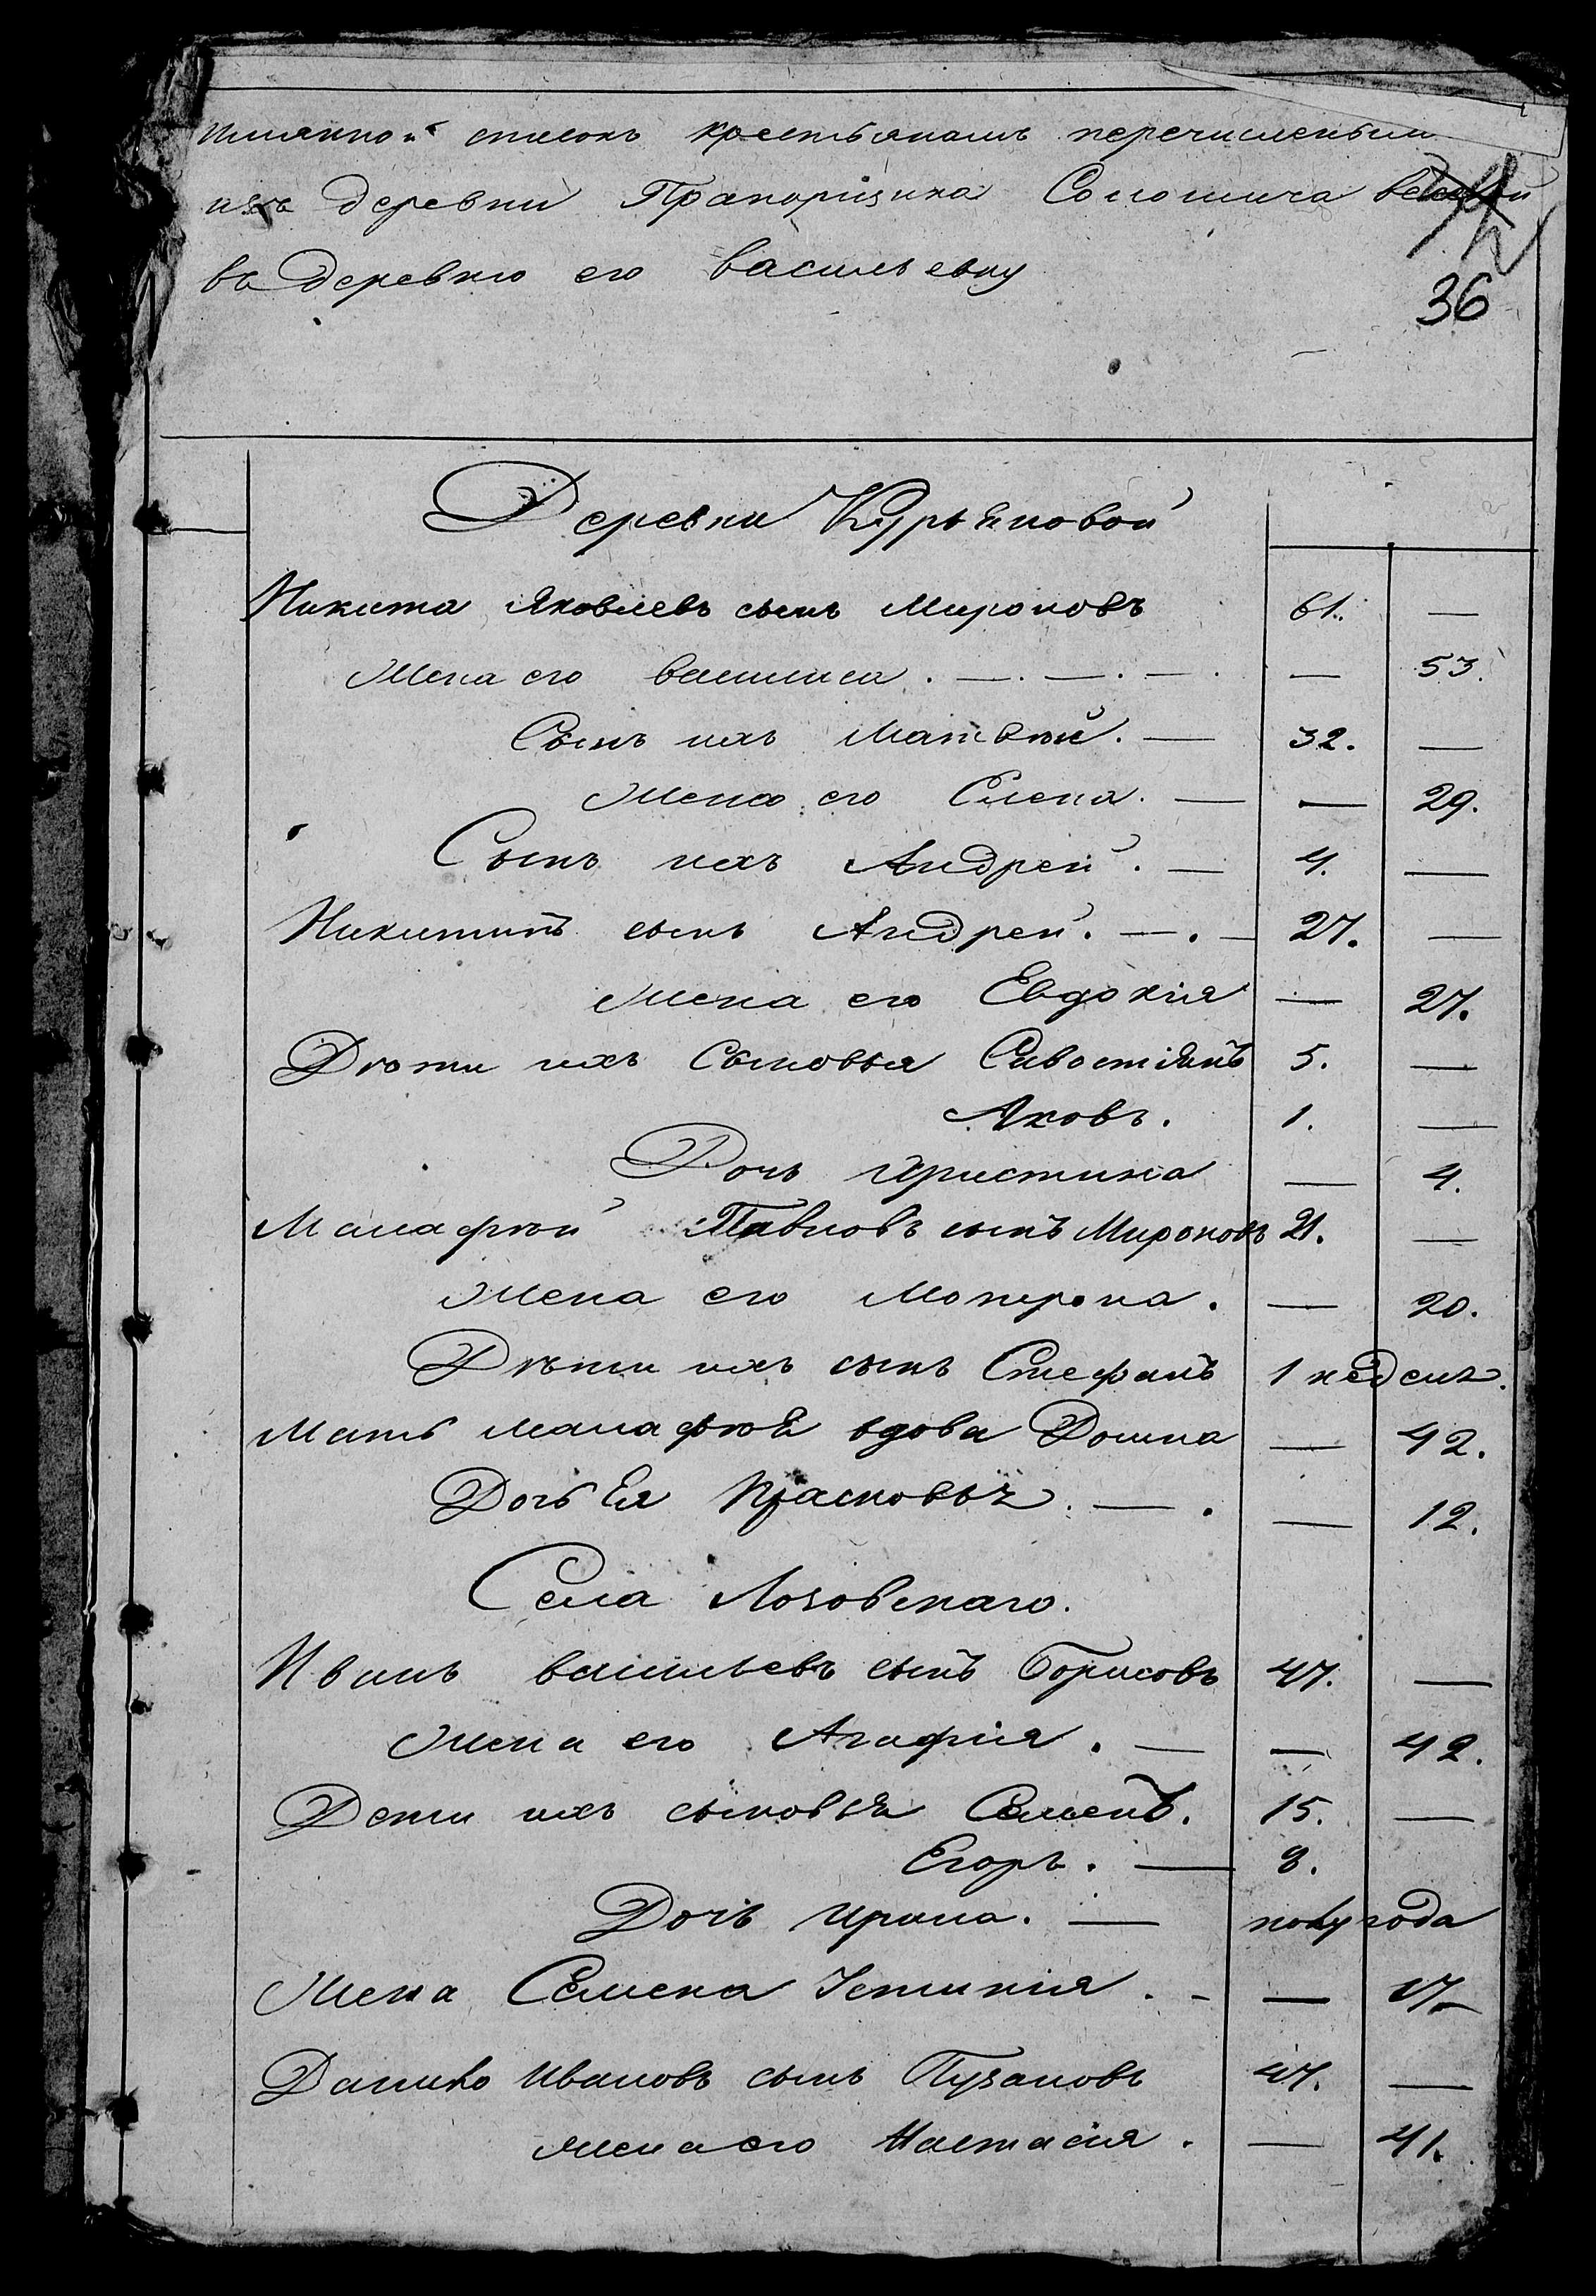 Имянной списокъ крестьянамъ перечисленнымъ
изъ деревни Прапорщика Соломича
въ деревню его Васильевку
36
Деревни Курьяновой
Никита Яковлевъ сынъ Мироновъ 61. —
Жена его Василиса . — . — . — . — 53.
Сынъ ихъ Матвѣй . — 32. —
Жена его Елена . — — 29.
Сынъ ихъ Андрей . — 4. —
Никитинъ сынъ Андрей . — . — 27. —
Жена его Евдокія — 27.
Дѣти ихъ сыновья Савостіянъ 5. —
Яковъ . 1. —
Дочь Христина — 4.
Малафѣй Павловъ сынъ Мироновъ 21. —
Жена его Мотрона . — 20.
Дѣти ихъ сынъ Стефанъ 1 недель.
Мать Малафѣя вдова Домна — 42.
Дочь Ея Прасковья . — . — 12.
Села Лозовскаго.
Иванъ Васильевъ сынъ Борисовъ 47. —
Жена его Агафія . — — 42.
Дети ихъ сыновья Семенъ . 15. —
Егоръ . — 8.
Дочь Ирина . — полугода
Жена Семена Устинія . - — 17.
Данило Ивановъ сынъ Пузановъ 47. —
Жена его Настасія . — 41.